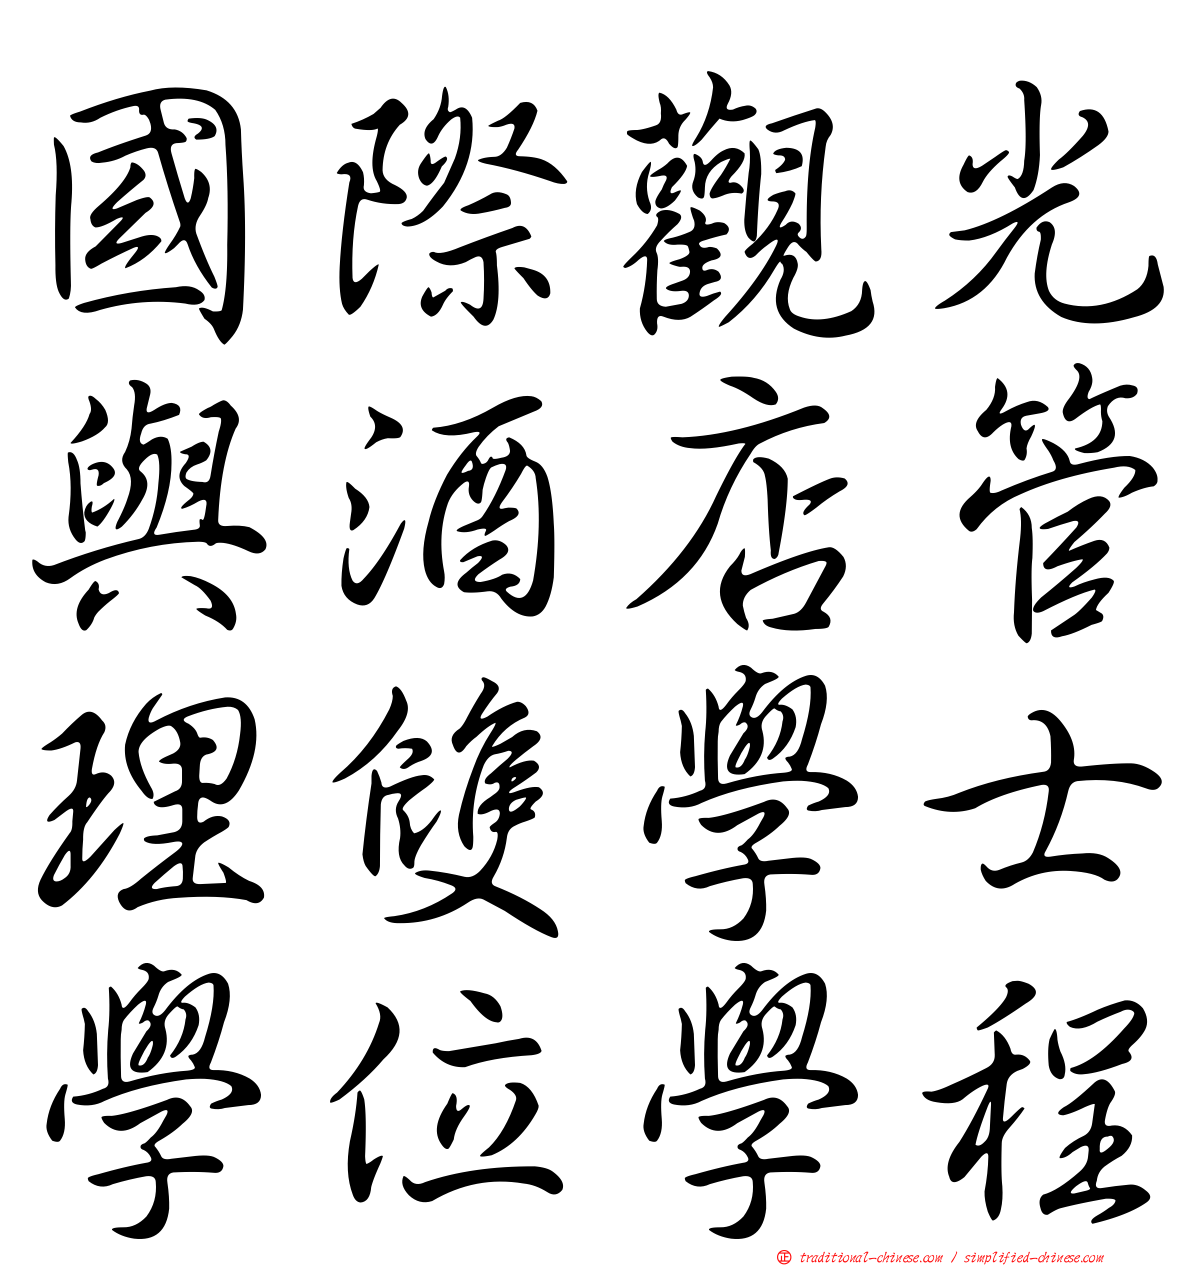 國際觀光
與酒店管
理雙學士
學位學程
正 traditional-chinese.com / simplified-chinese.com